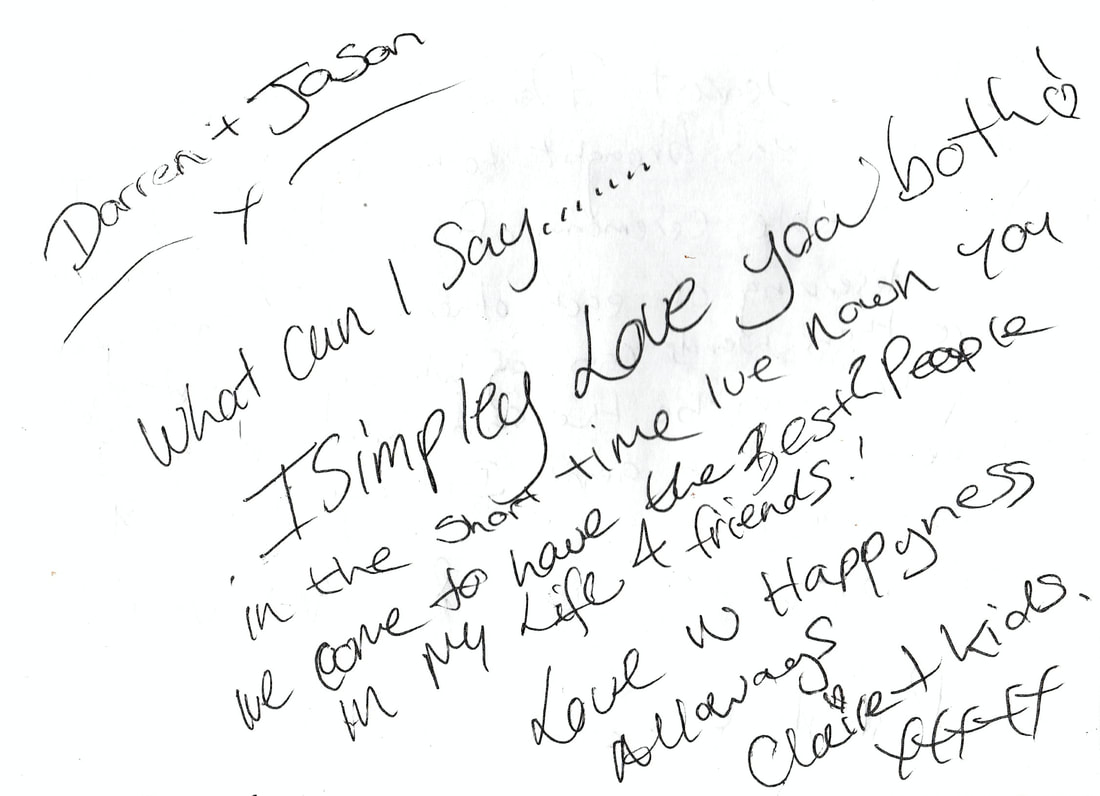 Darren + Jason
x
What can I Say.......
I Simpley Love you both!
in the short time Ive nown you
Ive come to have the Best 2 People
in My Life 4 friends!
Love N Happyness
Allways
Claire + Kids.